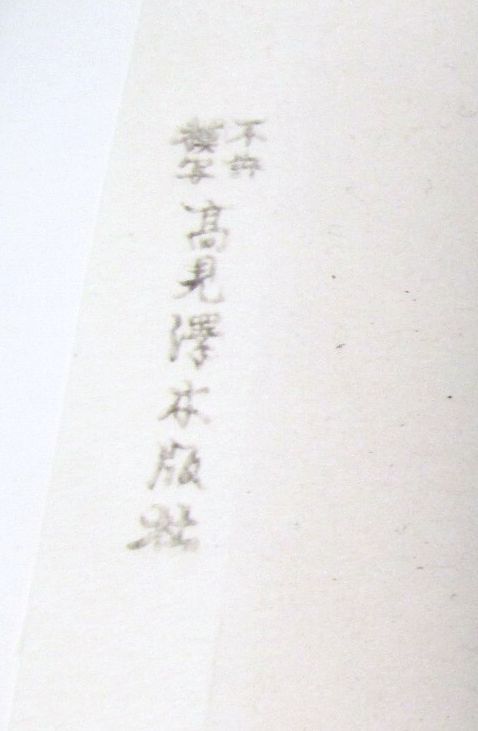 不許
模写
高見澤木版社